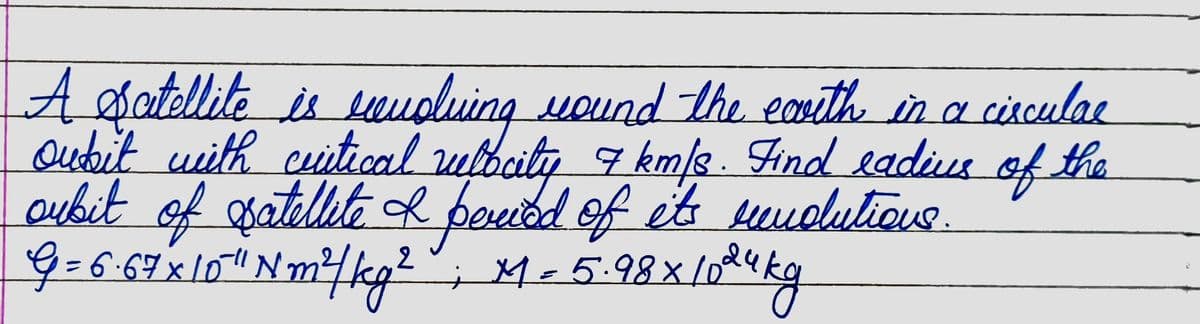 A satellite is revolving round the earth in a circular
orbit with critical velocity 7 km/s. Find radius of the
orbit of satellite & period of its revolutions.
G = 6.67 x 10⁻¹¹ N m²/kg² ; M = 5.98 x 10²⁴ kg